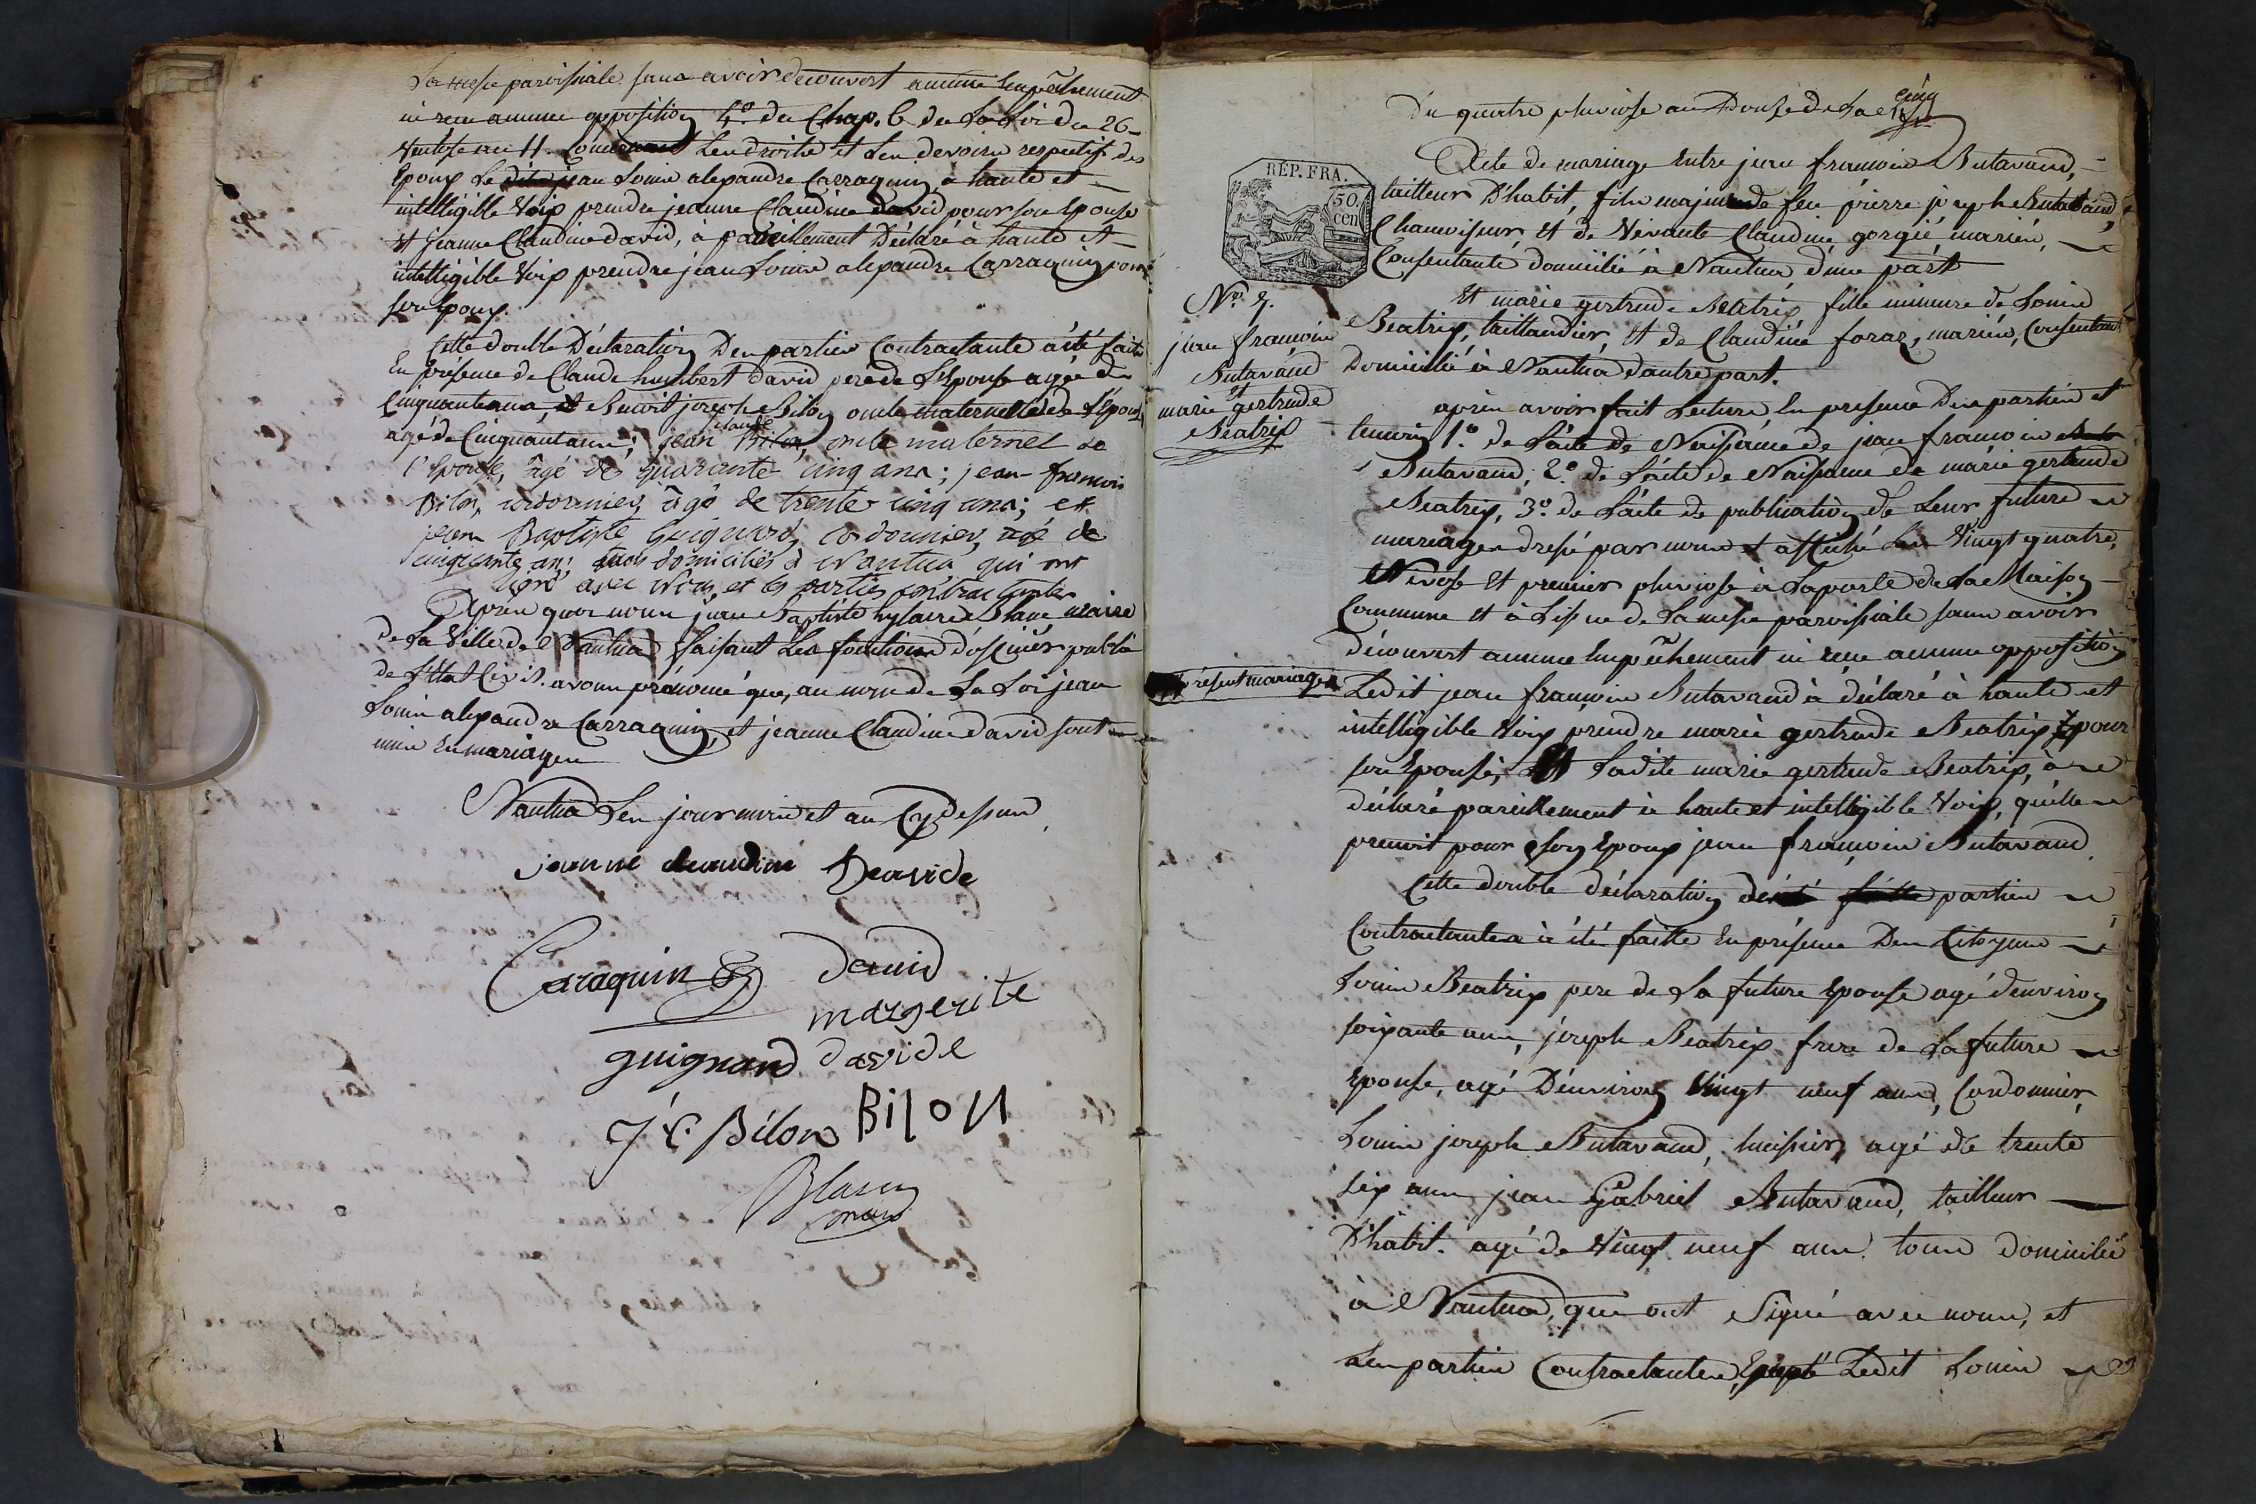 La messe paroissiale sans avoir decouvert aucune Empêchement
ni reçu aucune opposition 4.º du Chap. 6 de La Loi du 26
Ventose an 11. Les droits et Les devoirs respectifs des
Epoux Le jean Louis alexandre Carraquin a haute et
intelligible Voix prendre jeanne Claudine david pour son Epouse
Et jeanne Claudine david, à pareillement Déclaré à haute Et
intelligible Voix prendre jean Louis alexandre Carraquin pour
son Epoux.
Cette double Déclaration Des parties Contractante à été faite
En présence de Claude humbert david pere de L'Epouse agée de
Cinquante ans, et Benoit joseph Bilon oncle maternelle de L'Epouse
agé de Cinquante ans; jean claude Bilon, oncle maternel de
l'epouse, âgé de quarante cinq ans; jean francois
Bilon, cordonnier, âgé de trente cinq ans; et
jean Baptiste Guignard, cordonnier, agé de
cinquante ans; tous domiciliés à Nantua qui ont
signé avec Nous et les parties contractantes
Après quoi nous jean Baptiste hylaire Blanc maire
de La Ville de Nantua faisant Les fonctions d'officier public
de L'Etat Civil. avons prononcé que, au nom de La Loi jean
Louis alexandre Carraquin, et jeanne Claudine david sont
unis En mariage
Nantua Les jour mois et an Cydessus
jeanne claudine Davide
Caraquin david
margerite
guignard davide
J. C. Bilon BiloN
Blanc
maire
Du quatre pluviose an Douze de La cinq
Acte de mariage Entre jean françois Butavand,
tailleur D'habit, fils majeur de feu pierre joseph Butavand,
Chamoiseur Et de Vivante Claudine gorgié mariés,
Consentante domicilié à Nantua d'une part
Et marie gertrude Béatrix fille mineure de Louis
Beatrix, taillandier, Et de Claudine foraz, mariés, Consentant
Domicilié à Nantua d'autre part.
RÉP. FRA.
50.
cen
Nº. 5.
jean françois
Butavand
Et
marie gertrude
Beatrix
après avoir fait Lecture En presence Des parties et
temoins 1.º de L'acte de Naissance de jean françois
Butavand, 2.º de L'acte de Naissance de marie gertrude
Beatrix, 3.º de L'acte de publication de Leur future
mariage dressé par nous et affiché Les Vingt quatre,
Nivose Et premier pluviose à La porte de La Maison
Commune Et à L'issue de La messe paroissiale sans avoir
découvert aucune Empêchement ni reçu aucune opposition
présent mariage
Ledit jean françois Butavand à déclaré à haute et
intelligible Voix prendre marie gertrude Beatrix pour
son Epouse, Ladite marie gertrude Beatrix, à
déclaré pareillement à haute et intelligible Voix, qu'elle
prenoit pour son Epoux jean françois Butavand
Cette double déclaration des parties
Contractantes à été faitte En présence Des Citoyens
Louis Beatrix pere de La future Epouse agé d'environ
soixante ans, joseph Beatrix frere de La future
Epouse, agé D'environ Vingt neuf ans, Cordonnier,
Louis joseph Butavand, huissier, agé de trente
six ans jean Gabriel Butavand, tailleur
D'habit. agé de Vingt neuf ans. tous domicilié
à Nantua, qui ont Signé avec nous, et
Les parties Contractantes, Excepté Ledit Louis